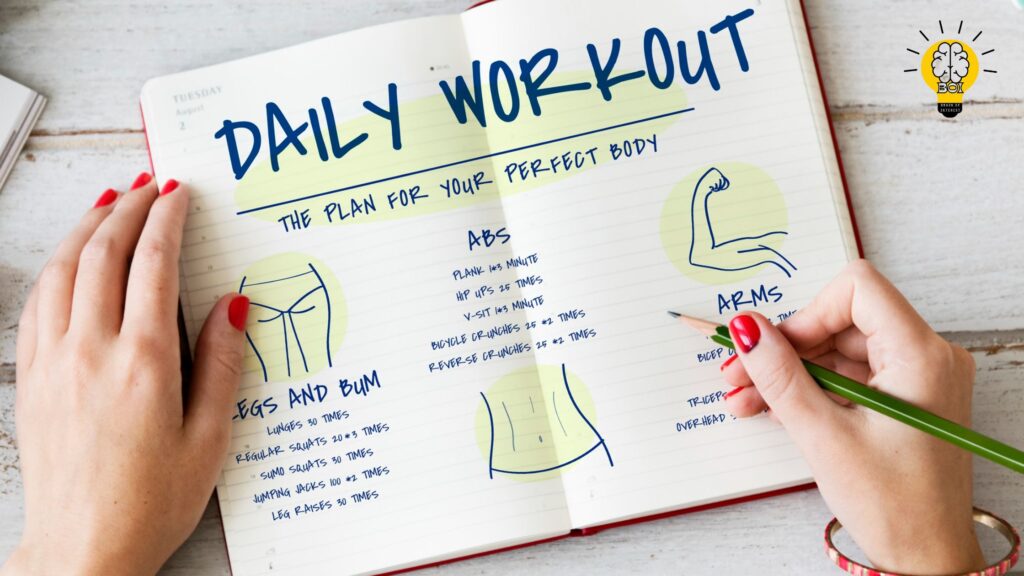 TUESDAY
August
2
DAILY WORKOUT
THE PLAN FOR YOUR PERFECT BODY
ABS
PLANK 1*3 MINUTE
HIP UPS 25 TIMES
V-SIT 1*3 MINUTE
BICYCLE CRUNCHES 25 *2 TIMES
REVERSE CRUNCHES 25 *2 TIMES
LEGS AND BUM
LUNGES 30 TIMES
REGULAR SQUATS 20*3 TIMES
SUMO SQUATS 30 TIMES
JUMPING JACKS 100 *2 TIMES
LEG RAISES 30 TIMES
ARMS
BICEP
TRICEPS
OVERHEAD
BOI
BRAIN OF
INTEREST